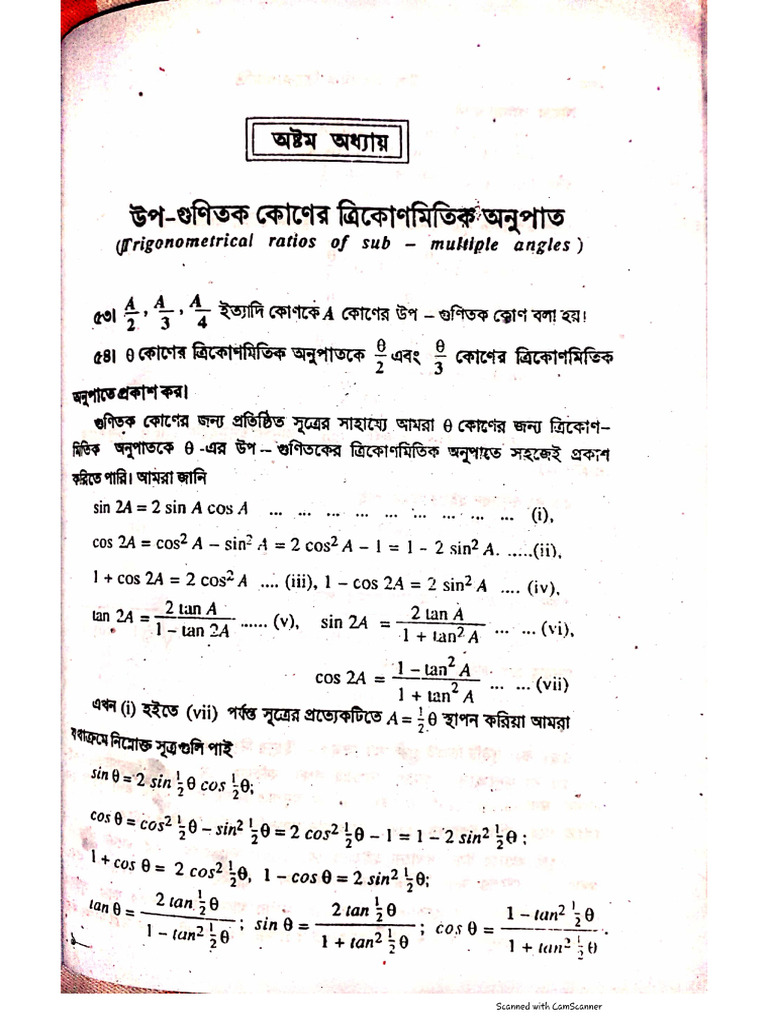 অষ্টম অধ্যায়
উপ-গুণিতক কোণের ত্রিকোণমিতিক অনুপাত
(Trigonometrical ratios of sub – multiple angles )
৫৩। A/2 , A/3 , A/4 ইত্যাদি কোণকে A কোণের উপ – গুণিতক কোণ বলা হয়।
৫৪। θ কোণের ত্রিকোণমিতিক অনুপাতকে θ/2 এবং θ/3 কোণের ত্রিকোণমিতিক
অনুপাতে প্রকাশ কর।
গুণিতক কোণের জন্য প্রতিষ্ঠিত সূত্রের সাহায্যে আমরা θ কোণের জন্য ত্রিকোণ–
মিতিক অনুপাতকে θ -এর উপ – গুণিতকের ত্রিকোণমিতিক অনুপাতে সহজেই প্রকাশ
করিতে পারি। আমরা জানি
sin 2A = 2 sin A cos A ... ... ... ... ... ... ... ... ... (i),
cos 2A = cos² A – sin² A = 2 cos² A – 1 = 1 - 2 sin² A. .....(ii),
1 + cos 2A = 2 cos² A .... (iii), 1 – cos 2A = 2 sin² A .... (iv),
tan 2A = 2 tan A / 1 – tan 2A ...... (v), sin 2A = 2 tan A / 1 + tan² A ... ... (vi),
cos 2A = 1 – tan² A / 1 + tan² A ... ... (vii)
এখন (i) হইতে (vii) পর্যন্ত সূত্রের প্রত্যেকটিতে A = ½ θ স্থাপন করিয়া আমরা
যথাক্রমে নিম্নোক্ত সূত্রগুলি পাই
sin θ = 2 sin ½ θ cos ½ θ;
cos θ = cos² ½ θ – sin² ½ θ = 2 cos² ½ θ – 1 = 1 – 2 sin² ½ θ ;
1 + cos θ = 2 cos² ½ θ, 1 – cos θ = 2 sin² ½ θ;
tan θ = 2 tan ½ θ / 1 – tan² ½ θ ; sin θ = 2 tan ½ θ / 1 + tan² ½ θ ; cos θ = 1 – tan² ½ θ / 1 + tan² ½ θ .
Scanned with CamScanner